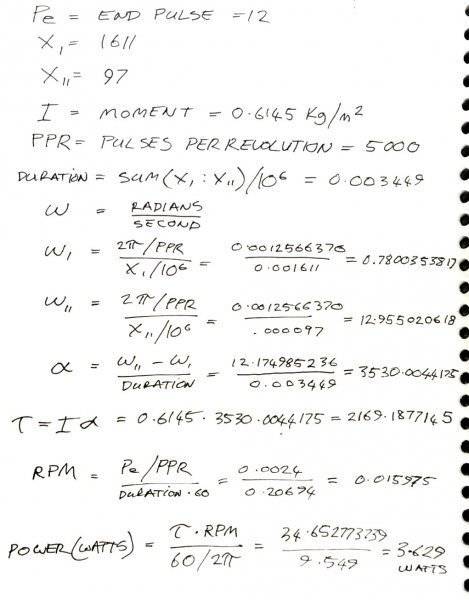 Pe = END PULSE = 12
X₁ = 1611
X₁₁ = 97
I = MOMENT = 0.6145 Kg/m²
PPR = PULSES PER REVOLUTION = 5000
DURATION = SUM(X₁ : X₁₁)/10⁶ = 0.003449
ω = RADIANS / SECOND
ω₁ = 2π/PPR / X₁/10⁶ = 0.0012566370 / 0.001611 = 0.7800353817
ω₁₁ = 2π/PPR / X₁₁/10⁶ = 0.0012566370 / .000097 = 12.955020618
α = ω₁₁ - ω₁ / DURATION = 12.174985236 / 0.003449 = 3530.0044175
τ = Iα = 0.6145 · 3530.0044175 = 2169.1877145
RPM = Pe/PPR / DURATION · 60 = 0.0024 / 0.20694 = 0.015975
POWER (WATTS) = τ · RPM / 60/2π = 34.652773739 / 9.549 = 3.629 WATTS